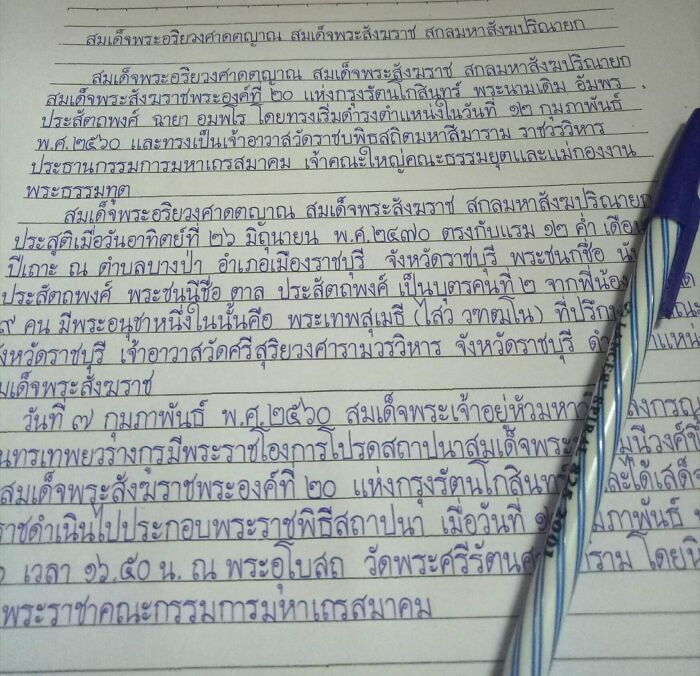 สมเด็จพระอริยวงศาคตญาณ สมเด็จพระสังฆราช สกลมหาสังฆปริณายก
สมเด็จพระอริยวงศาคตญาณ สมเด็จพระสังฆราช สกลมหาสังฆปริณายก
สมเด็จพระสังฆราชพระองค์ที่ ๒๐ แห่งกรุงรัตนโกสินทร์ พระนามเดิม อัมพร
ประสัตถพงศ์ ฉายา อมฺพโร โดยทรงเริ่มดำรงตำแหน่งในวันที่ ๑๒ กุมภาพันธ์
พ.ศ.๒๕๖๐ และทรงเป็นเจ้าอาวาสวัดราชบพิธสถิตมหาสีมาราม ราชวรวิหาร
ประธานกรรมการมหาเถรสมาคม เจ้าคณะใหญ่คณะธรรมยุตและแม่กองงาน
พระธรรมทูต
สมเด็จพระอริยวงศาคตญาณ สมเด็จพระสังฆราช สกลมหาสังฆปริณายก
ประสูติเมื่อวันอาทิตย์ที่ ๒๖ มิถุนายน พ.ศ.๒๔๗๐ ตรงกับแรม ๑๒ ค่ำ เดือน
ปีเถาะ ณ ตำบลบางป่า อำเภอเมืองราชบุรี จังหวัดราชบุรี พระชนกชื่อ
ประสัตถพงศ์ พระชนนีชื่อ ตาล ประสัตถพงศ์ เป็นบุตรคนที่ ๒ จากพี่น้อง
๙ คน มีพระอนุชาหนึ่งในนั้นคือ พระเทพสุเมธี (ไสว วฑฺฒโน) ที่ปรึกษ
ังหวัดราชบุรี เจ้าอาวาสวัดศรีสุริยวงศารามวรวิหาร จังหวัดราชบุรี
มเด็จพระสังฆราช
วันที่ ๗ กุมภาพันธ์ พ.ศ.๒๕๖๐ สมเด็จพระเจ้าอยู่หัวมหาว ลงกรณ
นทรเทพยวรางกูรมีพระราชโองการโปรดสถาปนาสมเด็จพระ มุนีวงศ์
สมเด็จพระสังฆราชพระองค์ที่ ๒๐ แห่งกรุงรัตนโกสินทร ละได้เสด็จ
ราชดำเนินไปประกอบพระราชพิธีสถาปนา เมื่อวันที่ มภาพันธ์
เวลา ๑๖.๕๐ น. ณ พระอุโบสถ วัดพระศรีรัตนศ าราม โดย
พระราชาคณะกรรมการมหาเถรสมาคม
LANCER SPIRAL 825 2001